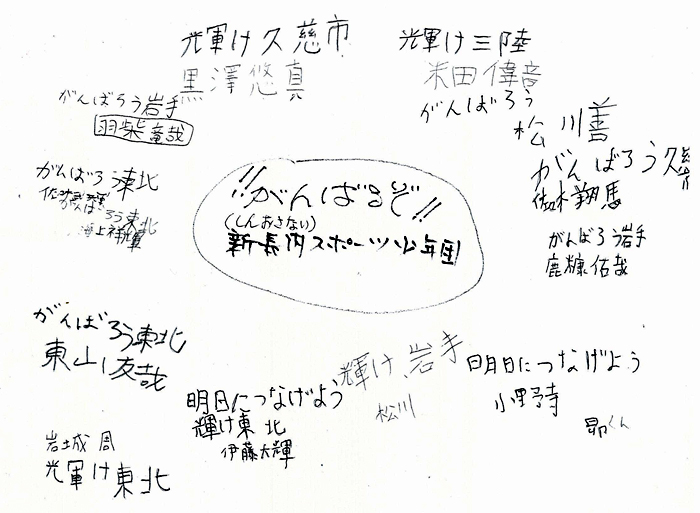 輝け久慈市
黒澤悠真
輝け三陸
米田偉音
がんばろう
松川善
がんばろう岩手
羽柴竜哉
がんばろう久慈市
佐々木翔馬
がんばろう東北
がんばろう東北
海上祥輝
!!がんばるぞ!!
(しんおさない)
新長内スポーツ少年団
がんばろう岩手
鹿糠佑哉
がんばろう東北
東山友哉
輝け岩手
松川
明日につなげよう
小野寺
昴くん
明日につなげよう
輝け東北
伊藤大輝
岩城周
輝け東北